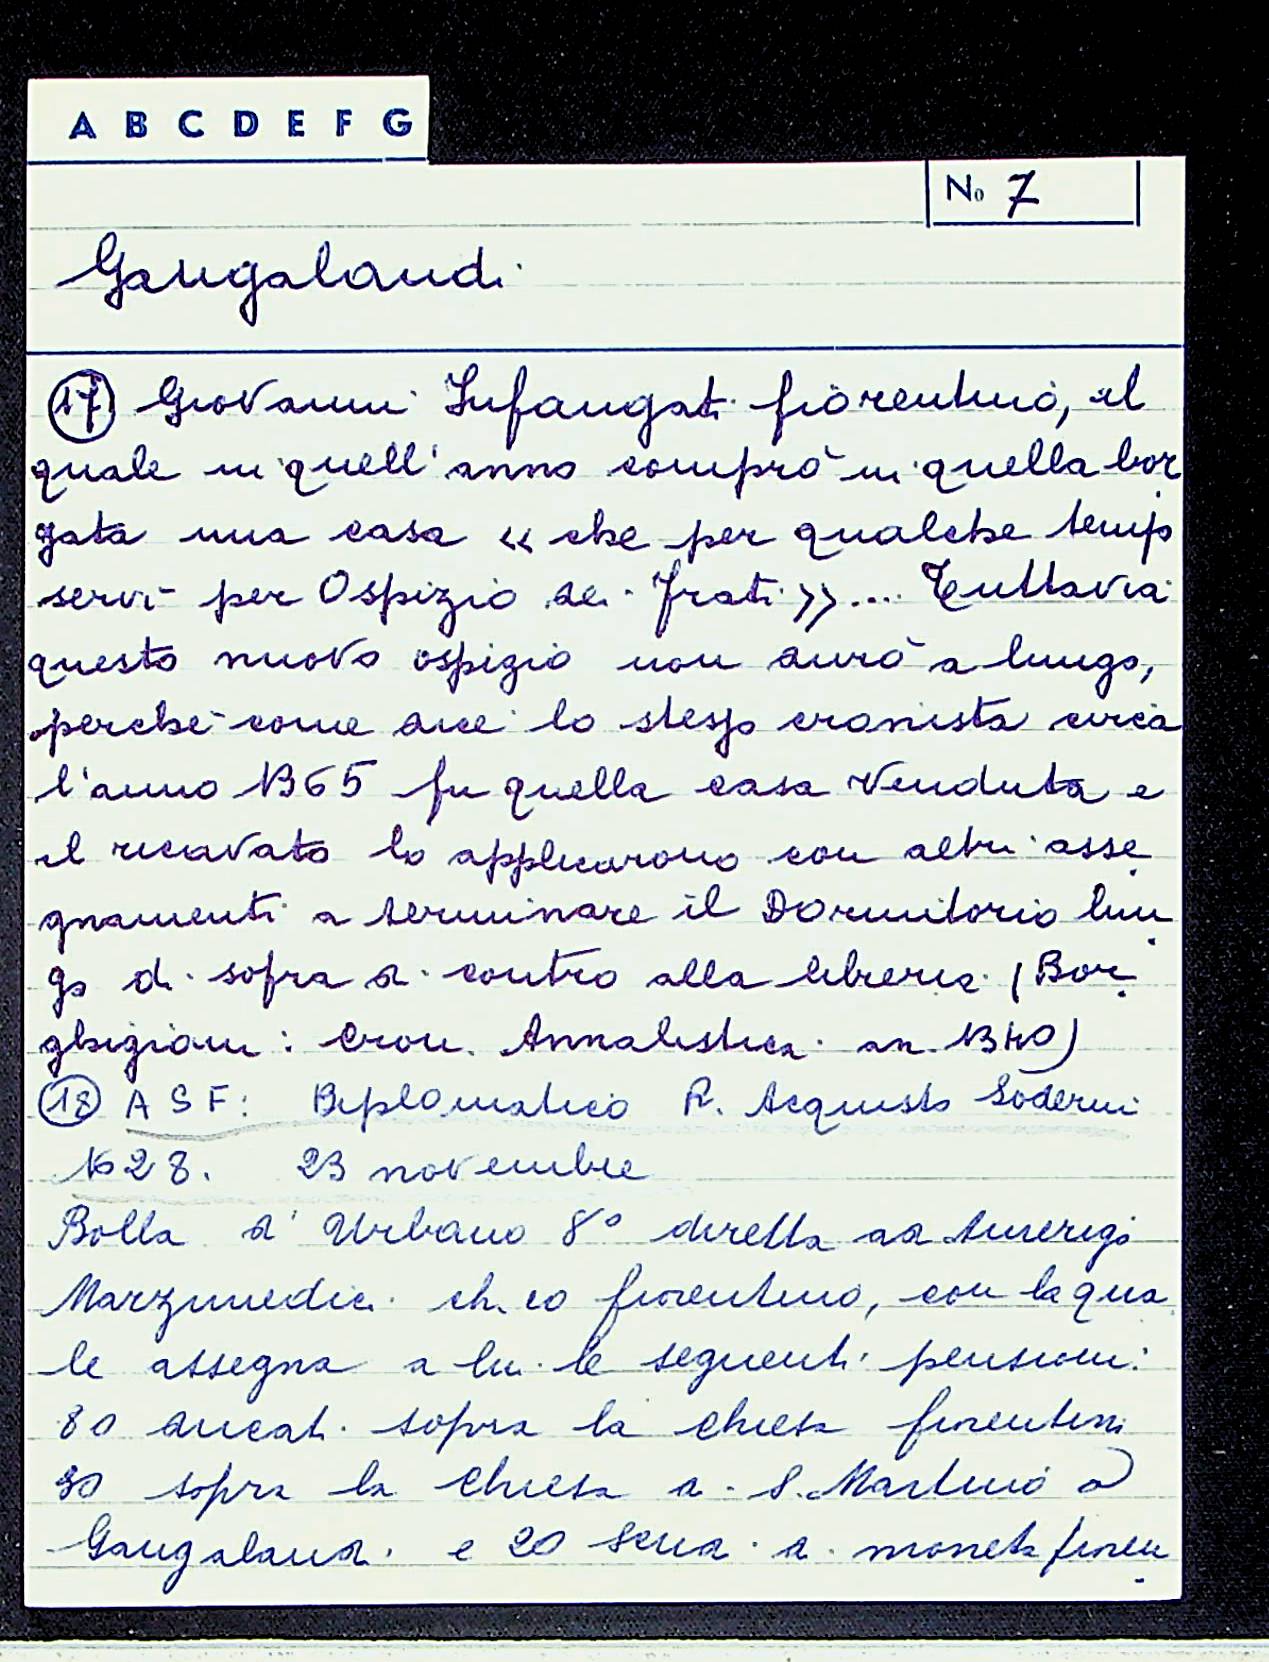 A B C D E F G
No 7
Gangalandi
(17) Giovanni Infangati fiorentino, il
quale in quell'anno comprò in quella bor
gata una casa « che per qualche tempo
servì per Ospizio dei Frati »... Tuttavia
questo nuovo ospizio non durò a lungo,
perchè come dice lo stesso cronista circa
l'anno 1365 fu quella casa venduta e
il ricavato lo applicarono con altri asse
gnamenti a terminare il Dormitorio lun
go di sopra di contro alla libreria. (Bor
ghigiani: Cron. Annalistica. an. 1340)
(18) A S F: Diplomatico R. Acquisto Soderini
1628. 23 novembre
Bolla d'Urbano 8° diretta ad Amerigo
Marzimedici ch.co fiorentino, con la qua
le assegna a lui le seguenti pensioni:
80 ducati sopra la chiesa fiorentina
30 sopra la chiesa di S. Martino a
Gangalandi e 20 scudi di moneta fioren